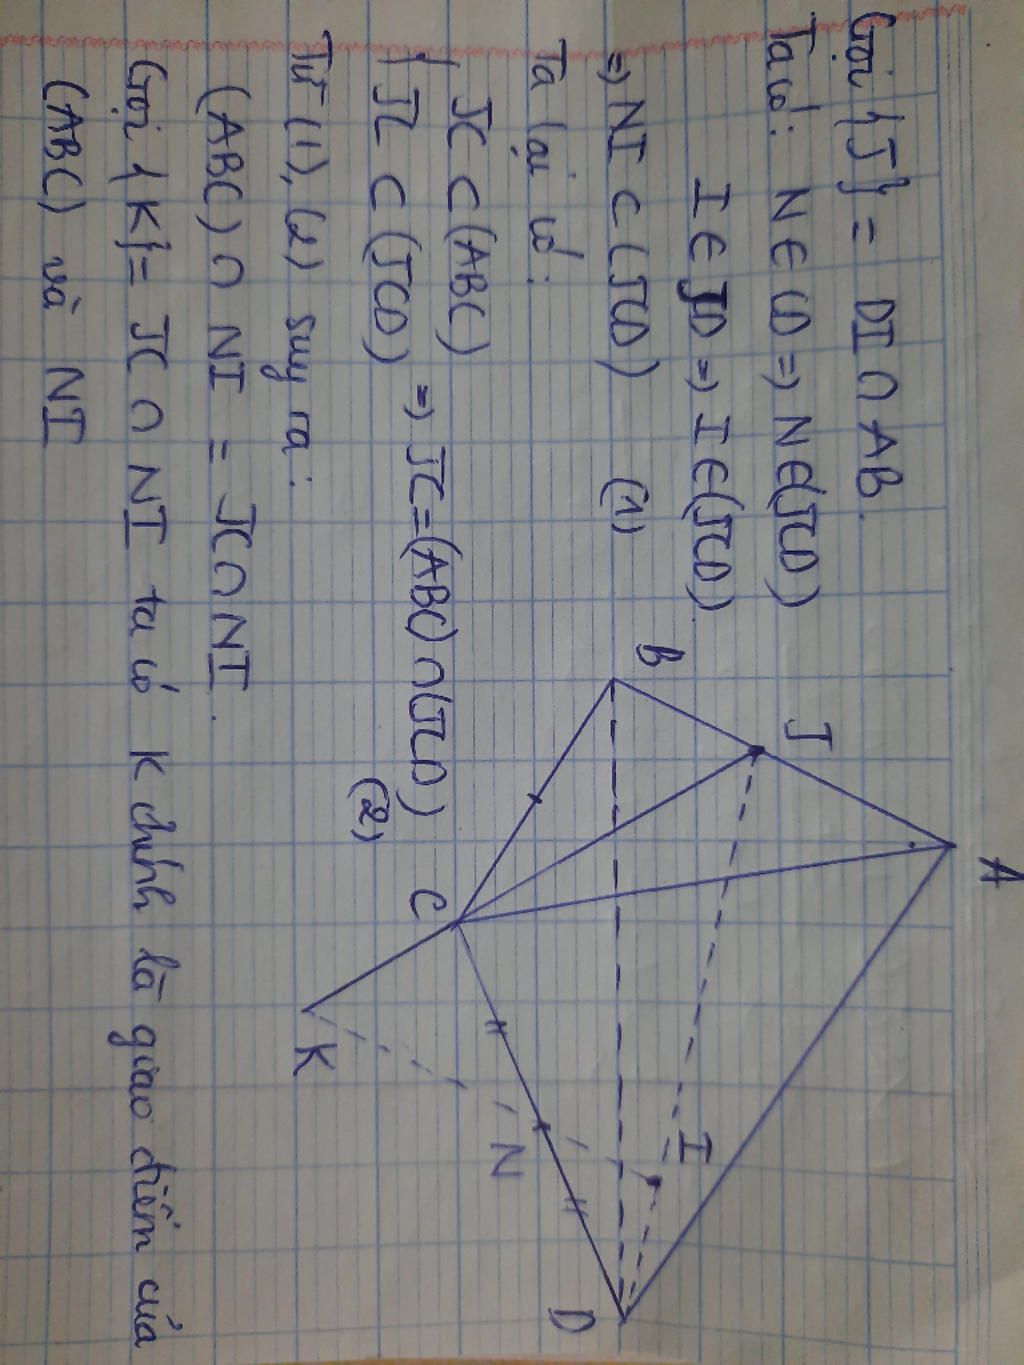 Gọi {J} = DI ∩ AB.
Ta có: N ∈ CD => N ∈ (JCD)
I ∈ JD => I ∈ (JCD)
=> NI ⊂ (JCD) (1)
Ta lại có:
{ JC ⊂ (ABC)
JC ⊂ (JCD) => JC = (ABC) ∩ (JCD) (2)
Từ (1), (2) suy ra:
(ABC) ∩ NI = JC ∩ NI.
Gọi {K} = JC ∩ NI ta có K chính là giao điểm của
(ABC) và NI
A
J
B
I
C
N
D
K